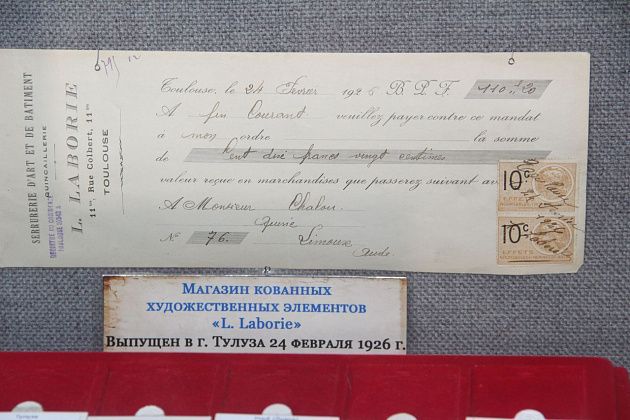 SERRURERIE D'ART ET DE BATIMENT
QUINCAILLERIE
L. LABORIE
11bis, Rue Colbert, 11bis
TOULOUSE
Toulouse, le 24 Fevrier 1926 B. P. F. 110,20
A fin Courant veuillez payer contre ce mandat
à mon ordre la somme
de Cent dix francs vingt centimes
valeur reçue en marchandises que passerez suivant av
A Monsieur Chalou
Limoux
N° 76. Aude.
10c
EFFETS
10c
EFFETS
Магазин кованных
художественных элементов
«L. Laborie»
Выпущен в г. Тулуза 24 февраля 1926 г.